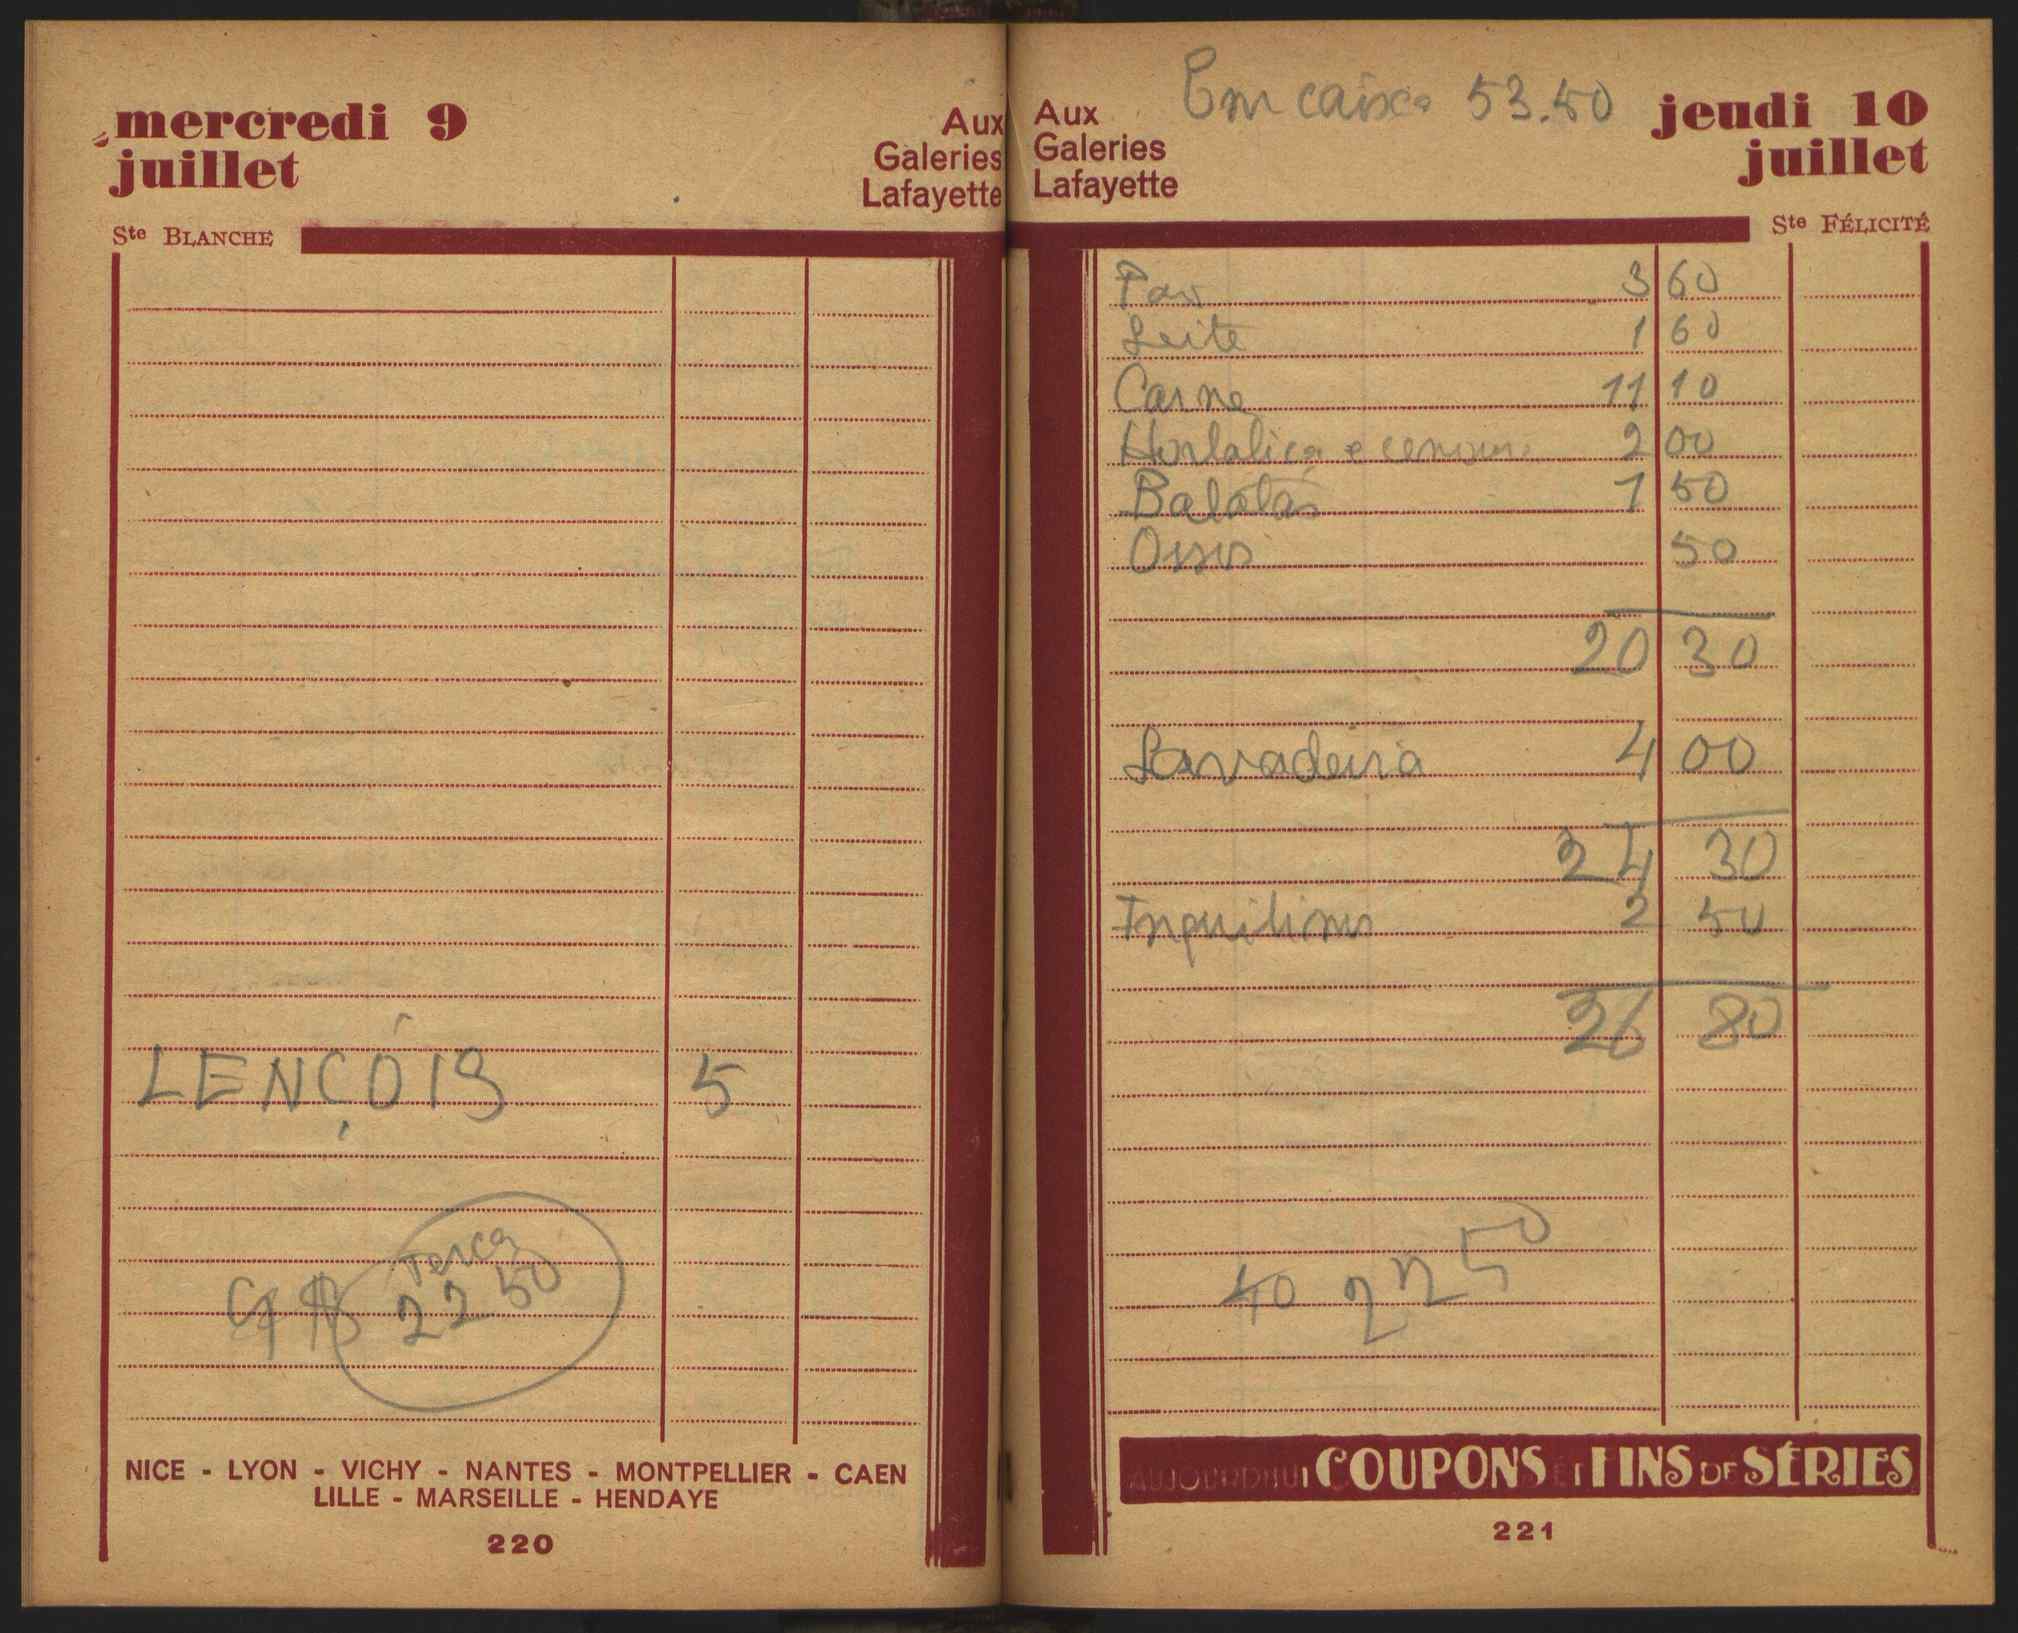 mercredi 9
juillet
Aux
Galeries
Lafayette
Ste BLANCHE
LENÇÓIS 5
Terça
22 50
NICE - LYON - VICHY - NANTES - MONTPELLIER - CAEN
LILLE - MARSEILLE - HENDAYE
220
Aux
Galeries
Lafayette
Em caixa 53.50
jeudi 10
juillet
Ste FÉLICITÉ
Pão 3 60
Leite 1 60
Carne 11 10
Hortaliça e cenoura 2 00
Batatas 1 50
Ossos 50
20 30
Lavadeira 4 00
24 30
Inquilino 2 50
26 80
40 22 50
AUJOURD'HUI COUPONS ET FINS DE SÉRIES
221